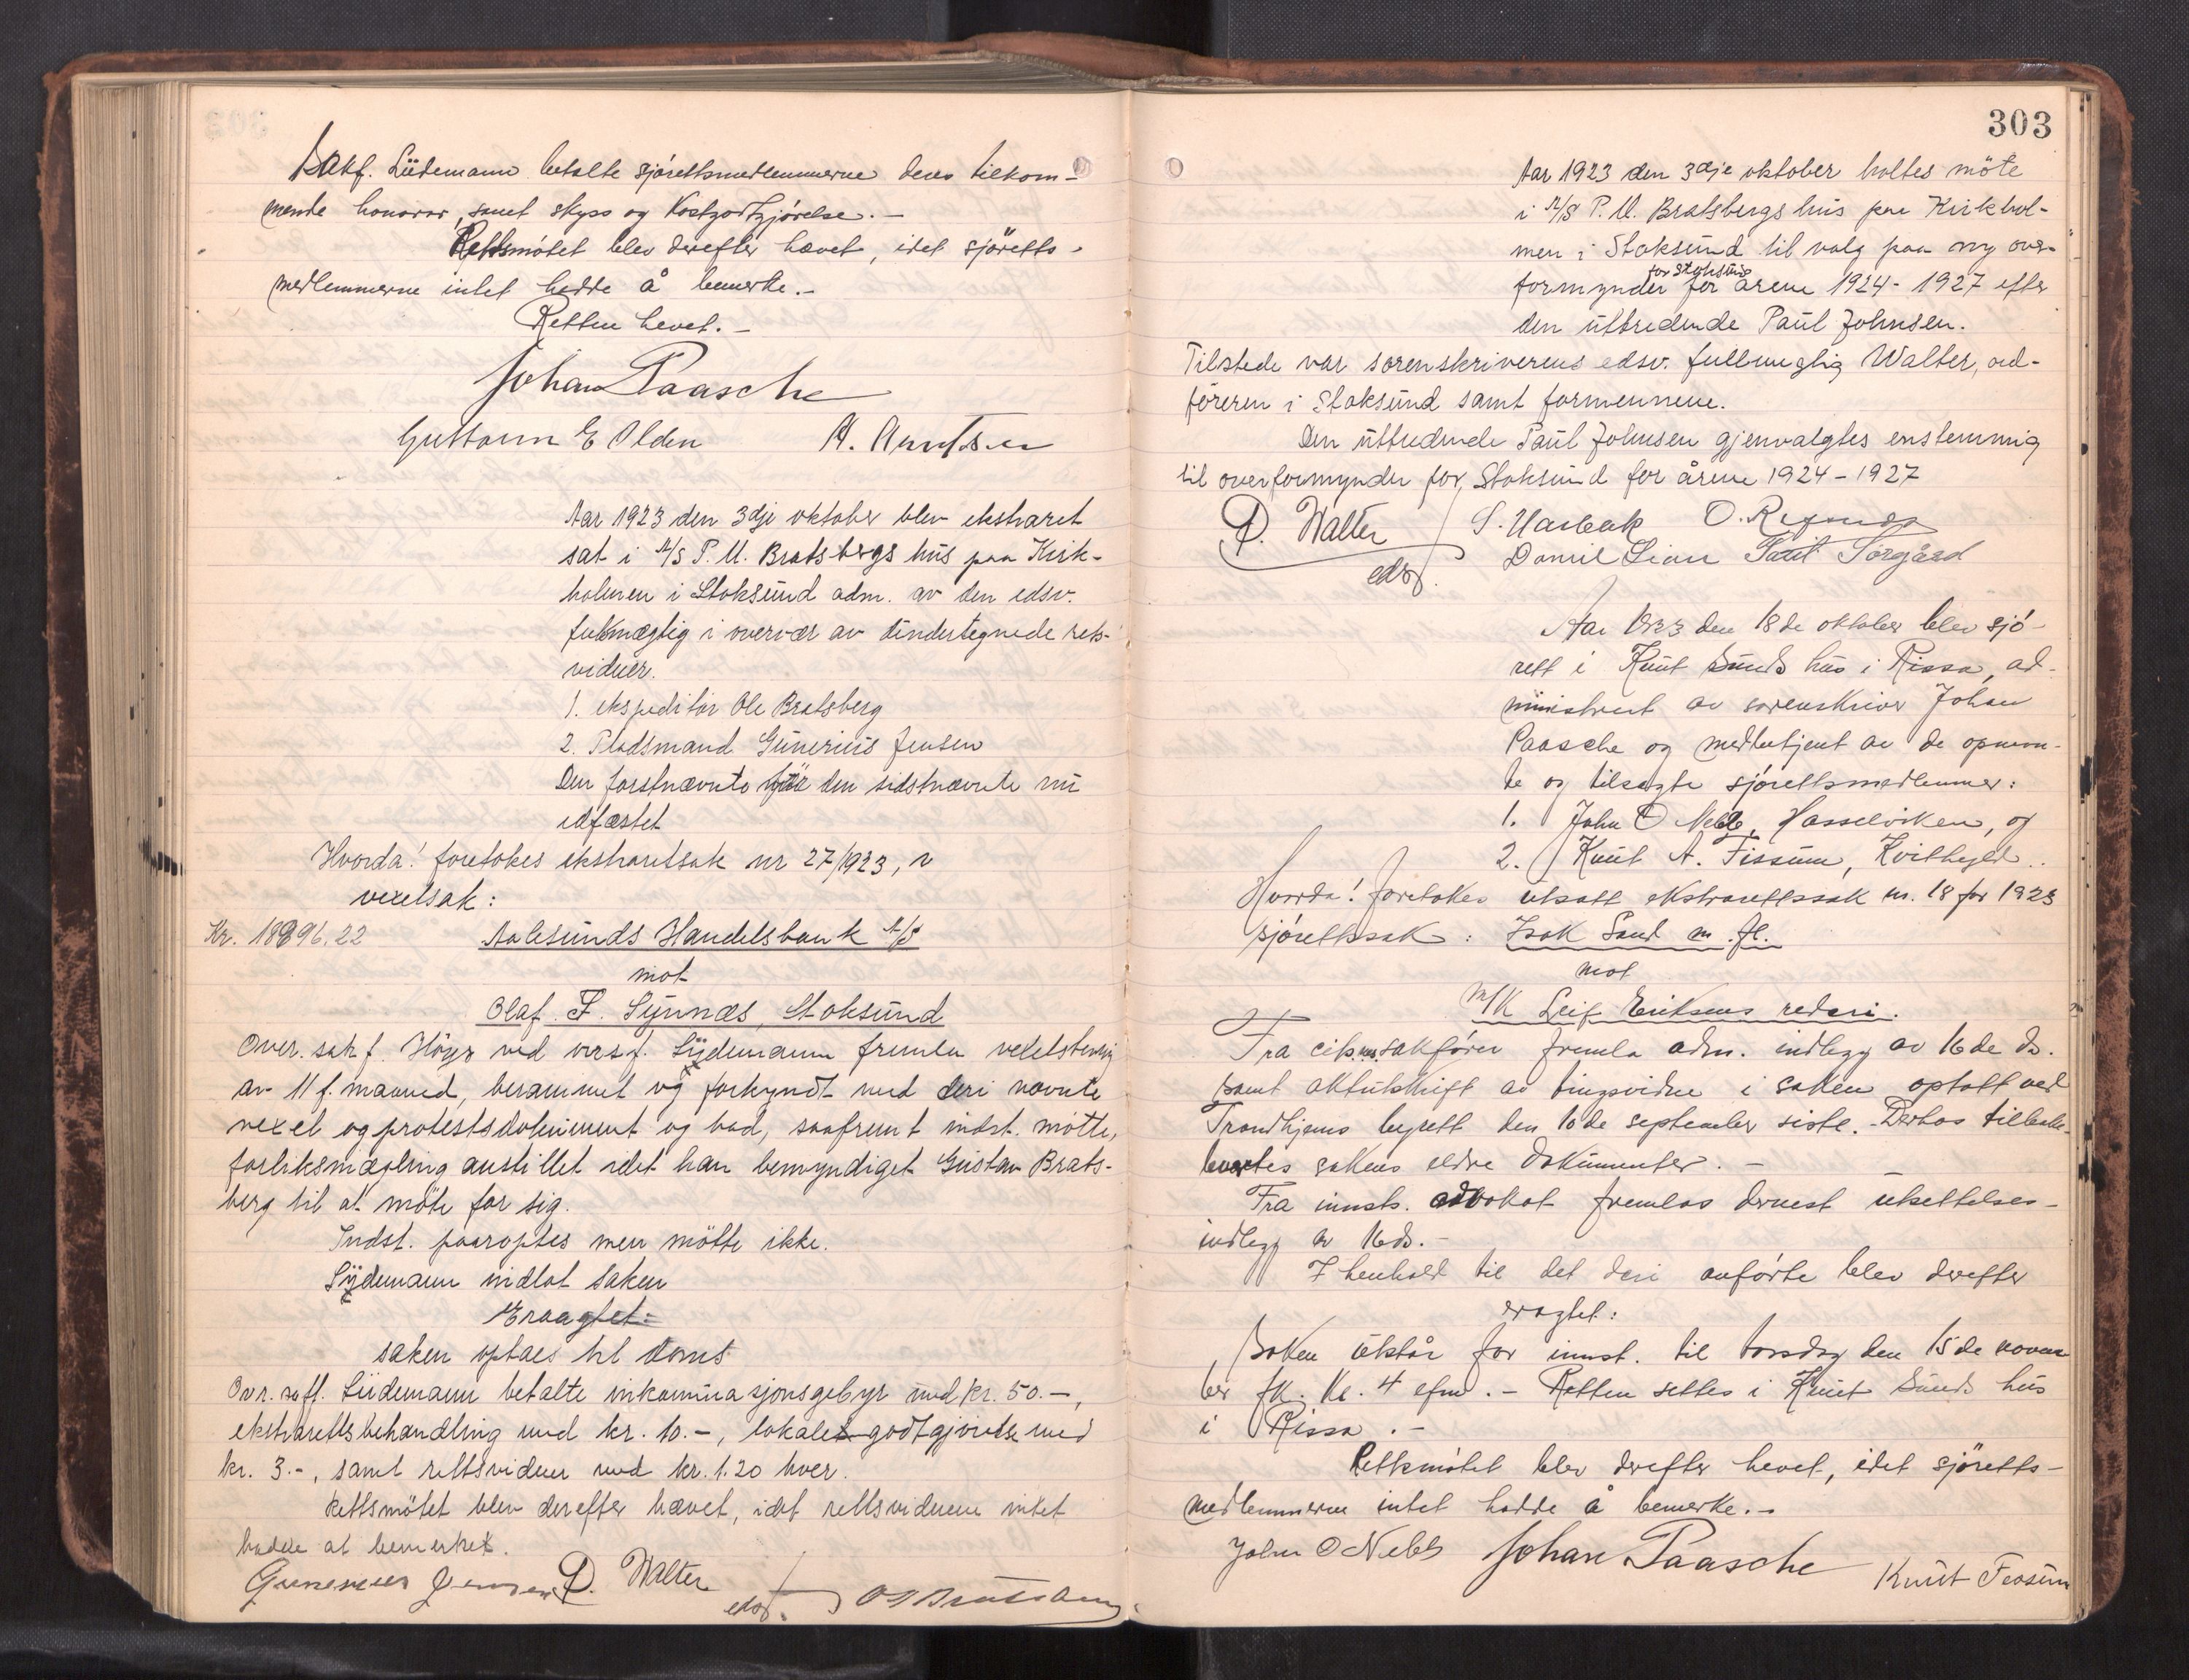 Sakf. Lüdemann betalte sjórettsmedlemmerne deres tilkom-
mende honorar, samt skyss og Kostgodtgjórelse. -
Rettsmótet blev derefter hævet, idet sjöretts-
medlemmerne intet hadde å bemerke. -
Retten hevet. -
Johan Paasche
Guttorm E Olden A. Arntsen
Aar 1923 den 3dje oktober blev ekstraret
sat i A/S P. M. Bratsbergs hus paa Kirk-
holmen i Stoksund adm. av den edsv.
fuldmægtig i overvær av undertegnede rets-
vidner.
1. ekspeditør Ole Bratsberg
2. Pladsmand Gunerius Jensen
Den førstnævnte før den sidstnævnte nu
edfæstet
Hvorda! foretokes ekstraretsak nr 27/1923, v
vexelsak:
Kr. 18896.22 Aalesunds Handelsbank A/S
mot
Olaf F. Synnæs, Stoksund
Over. sakf. Høyer ved overs.f. Lydemann fremla vexelstevning
av 11 f. maaned, berammet og forkyndt med deri nævnte
vexel og protestsdokument og bad, saafremt indst. møtte,
forliksmægling anstillet idet han bemyndiget Gustav Brats-
berg til at møte for sig.
Indst. paaroptes men mötte ikke.
Lydemann indlot saken
Eraagtet:
saken optaes til doms
Ovr. saf. Lüdemann betalte inkaminasjonsgebyr med kr. 50.-,
ekstrarettsbehandling med kr. 10.-, lokalegodtgjörelse med
kr. 3.-, samt rettsvidner med kr. 1.20 hver.
Rettsmötet blev derefter hævet, idet rettsvidnene intet
hadde at bemerke.
Gunerius Jensen D. Walter
edsf. O Bratsberg
303
Aar 1923 den 3dje oktober holtes möte
i A/S P. M. Bratsbergs hus paa Kirkhol-
men i Stoksund til valg paa ny over-
for Stoksund
formynder for årene 1924-1927 efter
den uttredende Paul Johnsen.
Tilstede var sorenskriverens edsv. fullmegtig Walter, ord-
föreren i Stoksund samt formennene.
Den uttredende Paul Johnsen gjenvalgtes enstemmig
til overformynder for Stoksund for årene 1924-1927
D. Walter S. Harbak O.
edsf. Daniel Lian Paul Sørgård
Aar 1923 den 18de oktober blev sjó-
rett i Knut Sunds hus i Rissa, ad-
ministrert av sorenskriver Johan
Paasche og medbetjent av de opnevn-
te og tilsagte sjórettsmedlemmer:
1. John O Nebb, Hasselviken, og
2. Knut A. Fissum, Kvithyld..
Hvorda! foretokes utsatt ekstrarettssak nr. 18 for 1923
sjórettssak: Isak Sand m. fl.
mot
M/K Leif Eriksens rederi.
Fra cit.ns sakfører fremla adm. indlegg av 16de ds.
samt aktutskrift av tingsvidne i saken optatt ved
Trondhjems byrett den 10de september sistl. Derhos tilbake-
levertes sakens eldre dokumenter. -
Fra innsts. advokat fremlas dernest utsettelses-
indlegg av 16ds. -
I henhold til det deri anförte blev derefter
eragtet:
Saken utstår for innst. til torsdag den 15de novem
ber fk. Kl. 4 efm. - Retten settes i Knut Sunds hus
i Rissa. -
Rettsmötet blev derefter hevet, idet sjöretts-
medlemmerne intet hadde å bemerke. -
John O Nebb Johan Paasche Knut Fissum